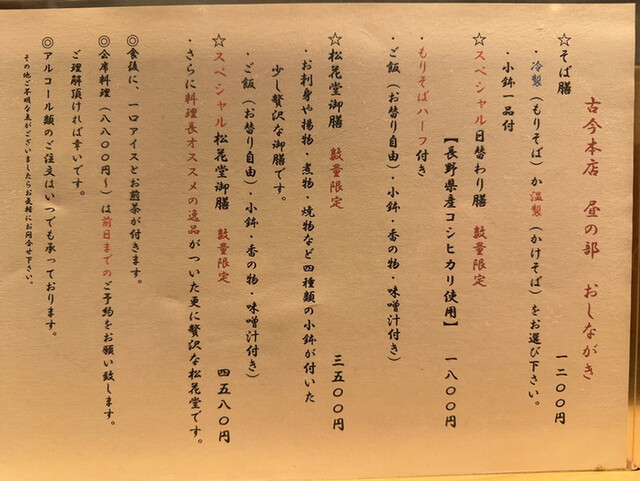 古今本店 昼の部 おしながき
☆そば膳 一二〇〇円
・冷製(もりそば)か温製(かけそば)をお選び下さい。
・小鉢一品付
☆スペシャル日替わり膳 数量限定 一八〇〇円
【長野県産コシヒカリ使用】
・もりそばハーフ付き
・ご飯(お替り自由)・小鉢・香の物・味噌汁付き)
☆松花堂御膳 数量限定 三五〇〇円
・お刺身や揚物・煮物・焼物など四種類の小鉢が付いた
少し贅沢な御膳です。
・ご飯(お替り自由)・小鉢・香の物・味噌汁付き)
☆スペシャル松花堂御膳 数量限定 四五八〇円
・さらに料理長オススメの逸品がついた更に贅沢な松花堂です。
◎食後に、一口アイスとお煎茶が付きます。
◎会席料理(八八〇〇円〜)は前日までのご予約をお願い致します。
ご理解頂ければ幸いです。
◎アルコール類のご注文はいつでも承っております。
その他ご不明な点がございましたらお気軽にお問合せ下さい。